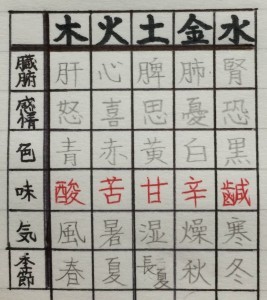 木 火 土 金 水
臓腑 肝 心 脾 肺 腎
感情 怒 喜 思 憂 恐
色 青 赤 黄 白 黒
味 酸 苦 甘 辛 鹹
気 風 暑 湿 燥 寒
季節 春 夏 長夏 秋 冬